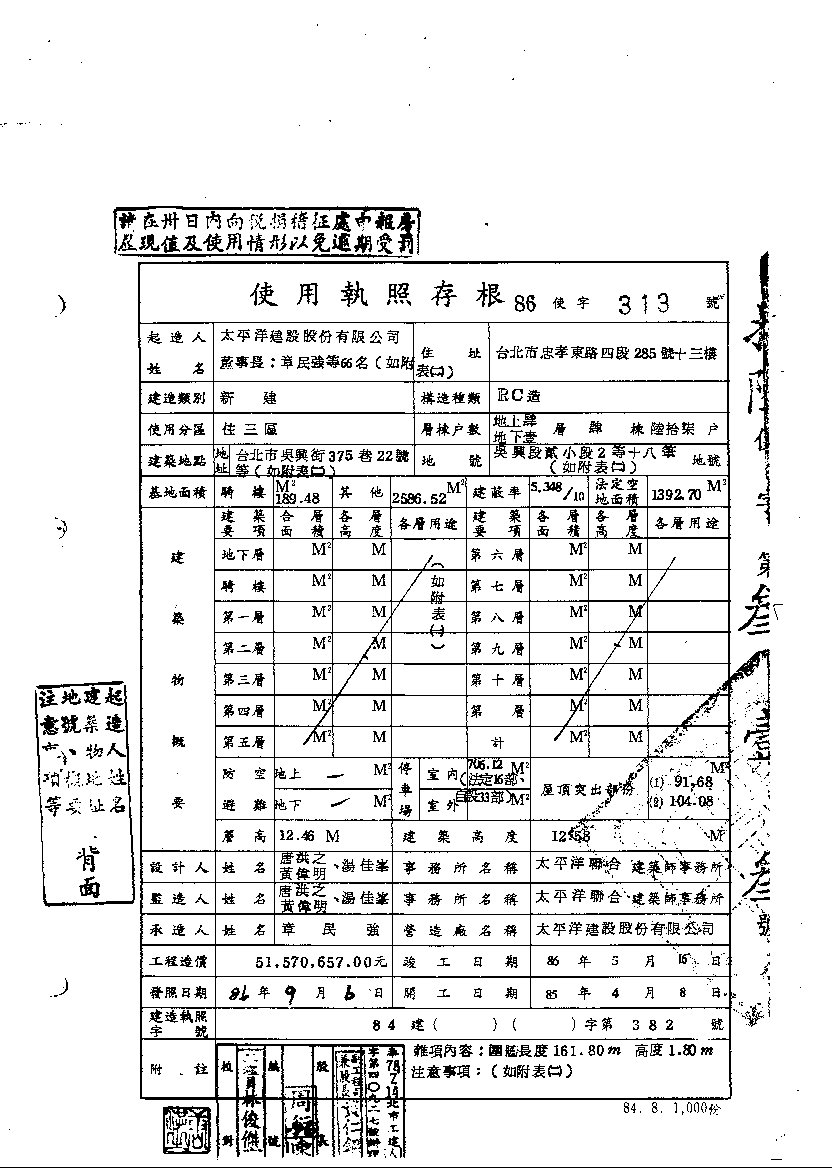 請在卅日內向稅捐稽征處申報房
屋現值及使用情形以免逾期受罰
使用執照存根 86 使字 313 號
起造人姓名 太平洋建設股份有限公司
董事長：章民強等66名（如附表㈡）
住址 台北市忠孝東路四段285號十三樓
建造類別 新建 構造種類 RC造
使用分區 住三區 層棟户數 地上肆 地下壹 層 肆 棟 陸拾柒 户
建築地點 地址 台北市吳興街375巷22號等（如附表㈡） 地號 吳興段貳小段2等十八筆（如附表㈡） 地號
基地面積 騎樓 M² 189.48 其他 2586.52 M² 建蔽率 5.348/10 法定空地面積 1392.70 M²
建築物概要
建築要項 合層面積 各層高度 各層用途 建築要項 各層面積 各層高度 各層用途
地下層 M² M 第六層 M² M
騎樓 M² M 第七層 M² M
第一層 M² M 第八層 M² M
第二層 M² M 第九層 M² M
第三層 M² M 第十層 M² M
第四層 M² M 第 層 M² M
第五層 M² M 計 M² M
（如附表㈡）
防空避難 地上 一 M² 停車場 室內 706.12（法定16部、自設33部）M² 屋頂突出部份 (1) 91.68 M²
地下 一 M² 室外 M² (2) 104.08
層高 12.46 M 建築高度 M
設計人 姓名 唐洪之、黃偉明、湯佳峯 事務所名稱 太平洋聯合 建築師事務所
監造人 姓名 唐洪之、黃偉明、湯佳峯 事務所名稱 太平洋聯合 建築師事務所
承造人 姓名 章民強 營造廠名稱 太平洋建設股份有限公司
工程造價 51,570,657.00元 竣工日期 86年5月16日
發照日期 86年9月6日 開工日期 85年4月8日
建造執照字號 84建（ ）（ ）字第382號
附註 雜項內容：圍籬長度161.80m 高度1.80m
注意事項：（如附表㈡）
校對
林俊傑
股長
84.8.1,000份
起造人姓名
建築物地址
地號
注意事項等
背面
第
號